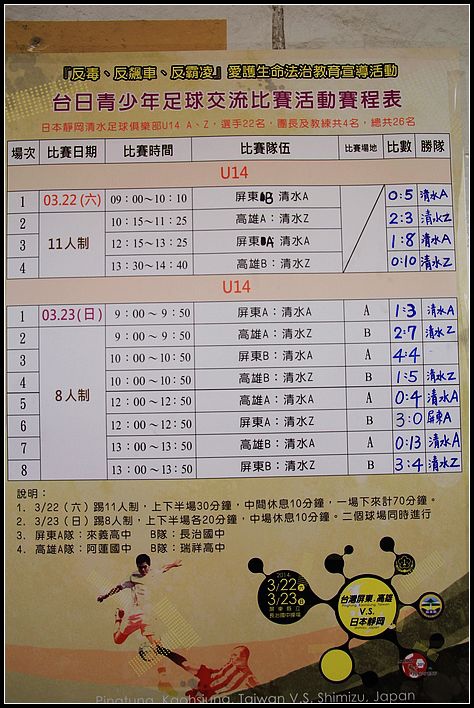 『反毒、反飆車、反霸凌』愛護生命法治教育宣導活動
台日青少年足球交流比賽活動賽程表
日本靜岡清水足球俱樂部U14 A、Z，選手22名，團長及教練共4名，總共26名
場次 比賽日期 比賽時間 比賽隊伍 比賽場地 比數 勝隊
U14
1 03.22(六) 09：00～10：10 屏東B：清水A 0:5 清水A
2 10：15～11：25 高雄A：清水Z 2:3 清水Z
3 11人制 12：15～13：25 屏東A：清水A 1:8 清水A
4 13：30～14：40 高雄B：清水Z 0:10 清水Z
U14
1 03.23(日) 9：00 ～ 9：50 屏東A：清水A A 1:3 清水A
2 9：00 ～ 9：50 高雄A：清水Z B 2:7 清水Z
3 10：00 ～ 10：50 屏東B：清水A A 4:4
4 10：00 ～ 10：50 高雄B：清水Z B 1:5 清水Z
5 8人制 12：00 ～ 12：50 高雄A：清水A A 0:4 清水A
6 12：00 ～ 12：50 屏東A：清水Z B 3:0 屏東A
7 13：00 ～ 13：50 高雄B：清水A A 0:13 清水A
8 13：00 ～ 13：50 屏東B：清水Z B 3:4 清水Z
說明：
1. 3/22（六）踢11人制，上下半場30分鐘，中間休息10分鐘，一場下來計70分鐘。
2. 3/23（日）踢8人制，上下半場各20分鐘，中場休息10分鐘。二個球場同時進行
3. 屏東A隊：來義高中 B隊：長治國中
4. 高雄A隊：阿蓮國中 B隊：瑞祥高中
2014
3/22 六
3/23 日
屏東縣立
長治國中操場
台灣屏東、高雄
V.S.
日本靜岡
Pingtung, Kaohsiung, Taiwan V.S. Shimizu, Japan